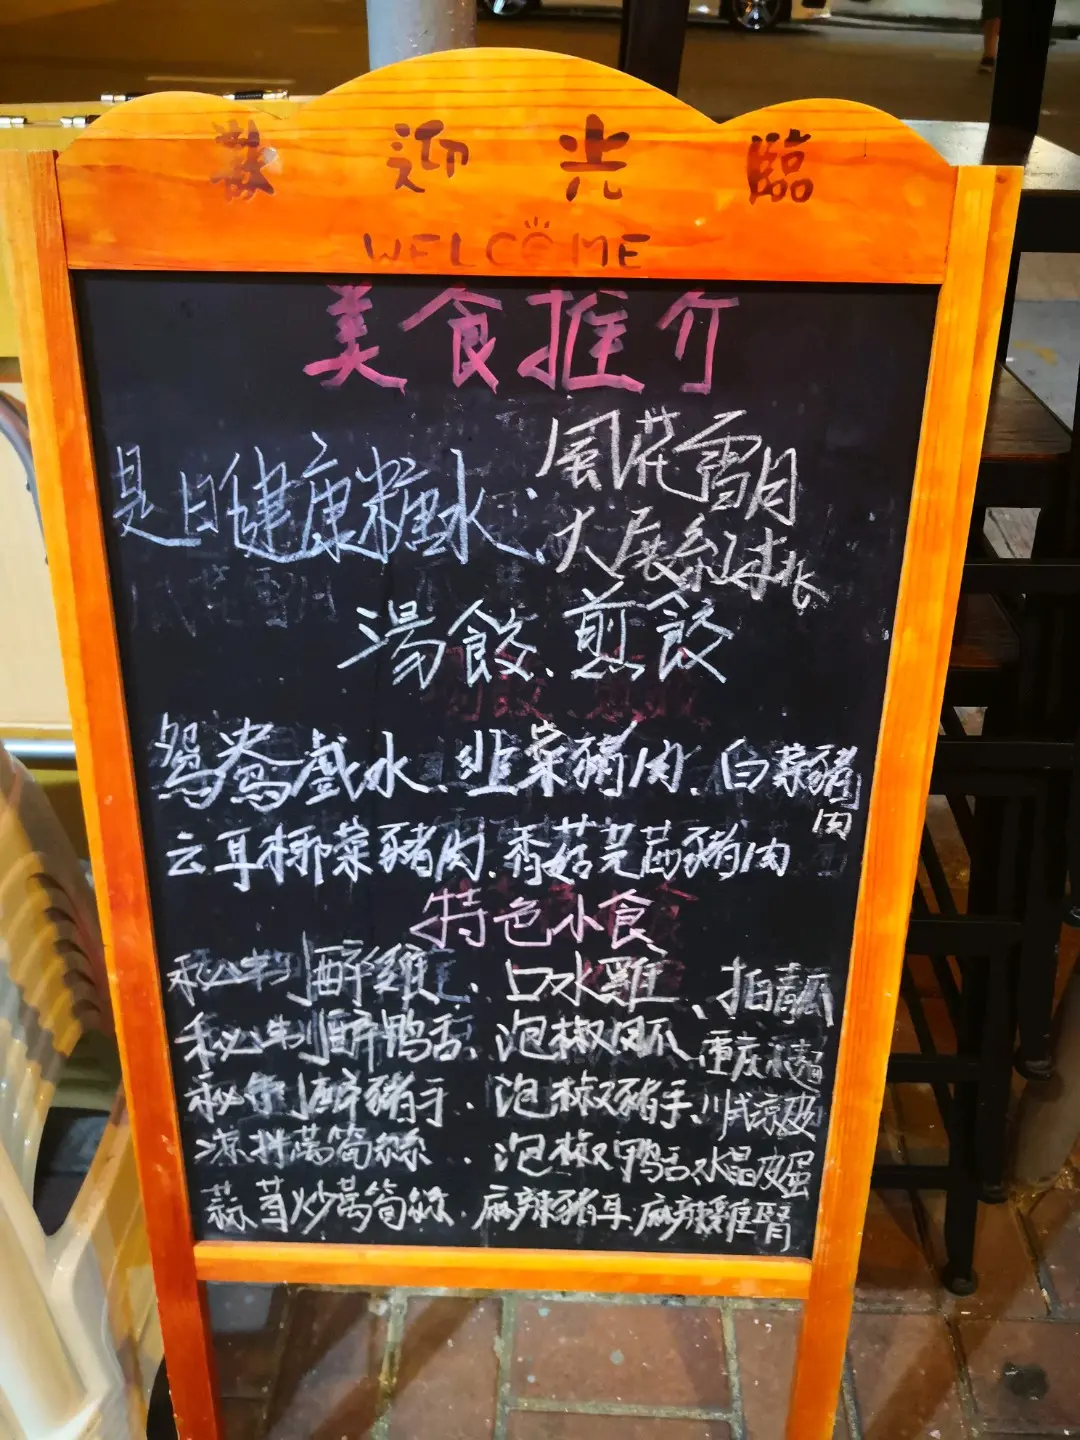 歡迎光臨
WELCOME
美食推介
是日健康糖水：風花雪月
大展紅圖
湯餃、煎餃
鴛鴦戲水、韭菜豬肉、白菜豬肉
云耳椰菜豬肉、香菇芫茜豬肉
特色小食
秘制醉雞、口水雞、拍青瓜
秘制醉鸭舌、泡椒凤爪、重庆凉麵
秘制醉豬手、泡椒豬手、川式凉皮
凉拌萵筍絲、泡椒鸭舌、水晶皮蛋
蒜茸炒萵筍絲、麻辣豬耳、麻辣雞腎